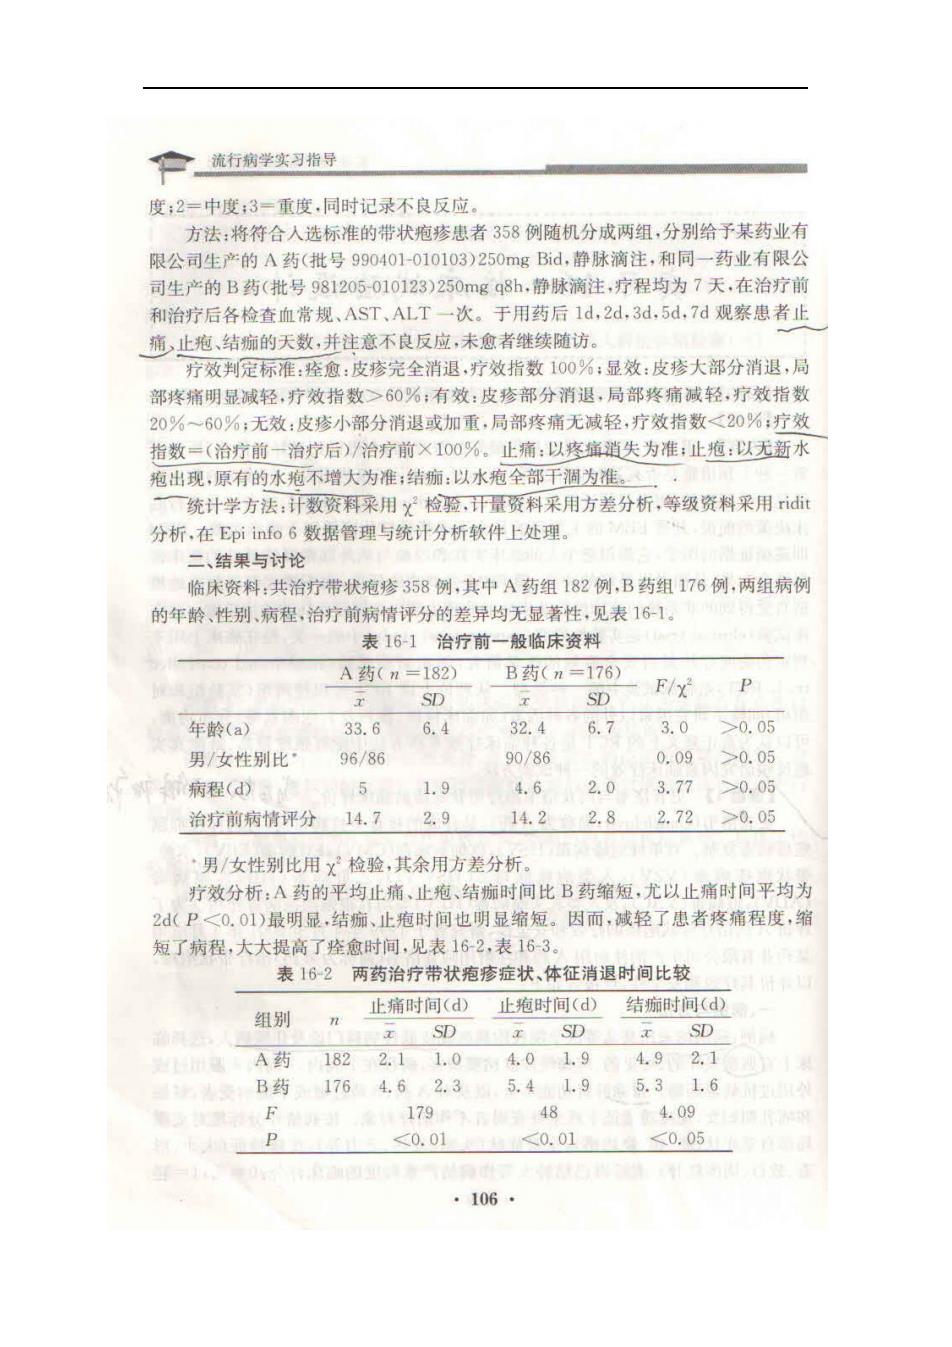 流行病学实习指导
度;2=中度;3=重度,同时记录不良反应。
方法:将符合入选标准的带状疱疹患者 358 例随机分成两组,分别给予某药业有
限公司生产的 A 药(批号 990401-010103)250mg Bid,静脉滴注,和同一药业有限公
司生产的 B 药(批号 981205-010123)250mg q8h,静脉滴注,疗程均为 7 天,在治疗前
和治疗后各检查血常规、AST、ALT 一次。于用药后 1d,2d,3d,5d,7d 观察患者止
痛、止疱、结痂的天数,并注意不良反应,未愈者继续随访。
疗效判定标准:痊愈:皮疹完全消退,疗效指数 100%;显效:皮疹大部分消退,局
部疼痛明显减轻,疗效指数>60%;有效:皮疹部分消退,局部疼痛减轻,疗效指数
20%~60%;无效:皮疹小部分消退或加重,局部疼痛无减轻,疗效指数<20%;疗效
指数=(治疗前-治疗后)/治疗前×100%。止痛:以疼痛消失为准;止疱:以无新水
疱出现,原有的水疱不增大为准;结痂:以水疱全部干涸为准。
统计学方法:计数资料采用 χ² 检验,计量资料采用方差分析,等级资料采用 ridit
分析,在 Epi info 6 数据管理与统计分析软件上处理。
二、结果与讨论
临床资料:共治疗带状疱疹 358 例,其中 A 药组 182 例,B 药组 176 例,两组病例
的年龄、性别、病程,治疗前病情评分的差异均无显著性,见表 16-1。
表 16-1 治疗前一般临床资料
A 药(n=182) B 药(n=176) F/χ² P
x̄ SD x̄ SD
年龄(a) 33.6 6.4 32.4 6.7 3.0 >0.05
男/女性别比* 96/86 90/86 0.09 >0.05
病程(d) 5 1.9 4.6 2.0 3.77 >0.05
治疗前病情评分 14.7 2.9 14.2 2.8 2.72 >0.05
*男/女性别比用 χ² 检验,其余用方差分析。
疗效分析:A 药的平均止痛、止疱、结痂时间比 B 药缩短,尤以止痛时间平均为
2d(P<0.01)最明显,结痂、止疱时间也明显缩短。因而,减轻了患者疼痛程度,缩
短了病程,大大提高了痊愈时间,见表 16-2,表 16-3。
表 16-2 两药治疗带状疱疹症状、体征消退时间比较
组别 n 止痛时间(d) 止疱时间(d) 结痂时间(d)
x̄ SD x̄ SD x̄ SD
A 药 182 2.1 1.0 4.0 1.9 4.9 2.1
B 药 176 4.6 2.3 5.4 1.9 5.3 1.6
F 179 48 4.09
P <0.01 <0.01 <0.05
· 106 ·